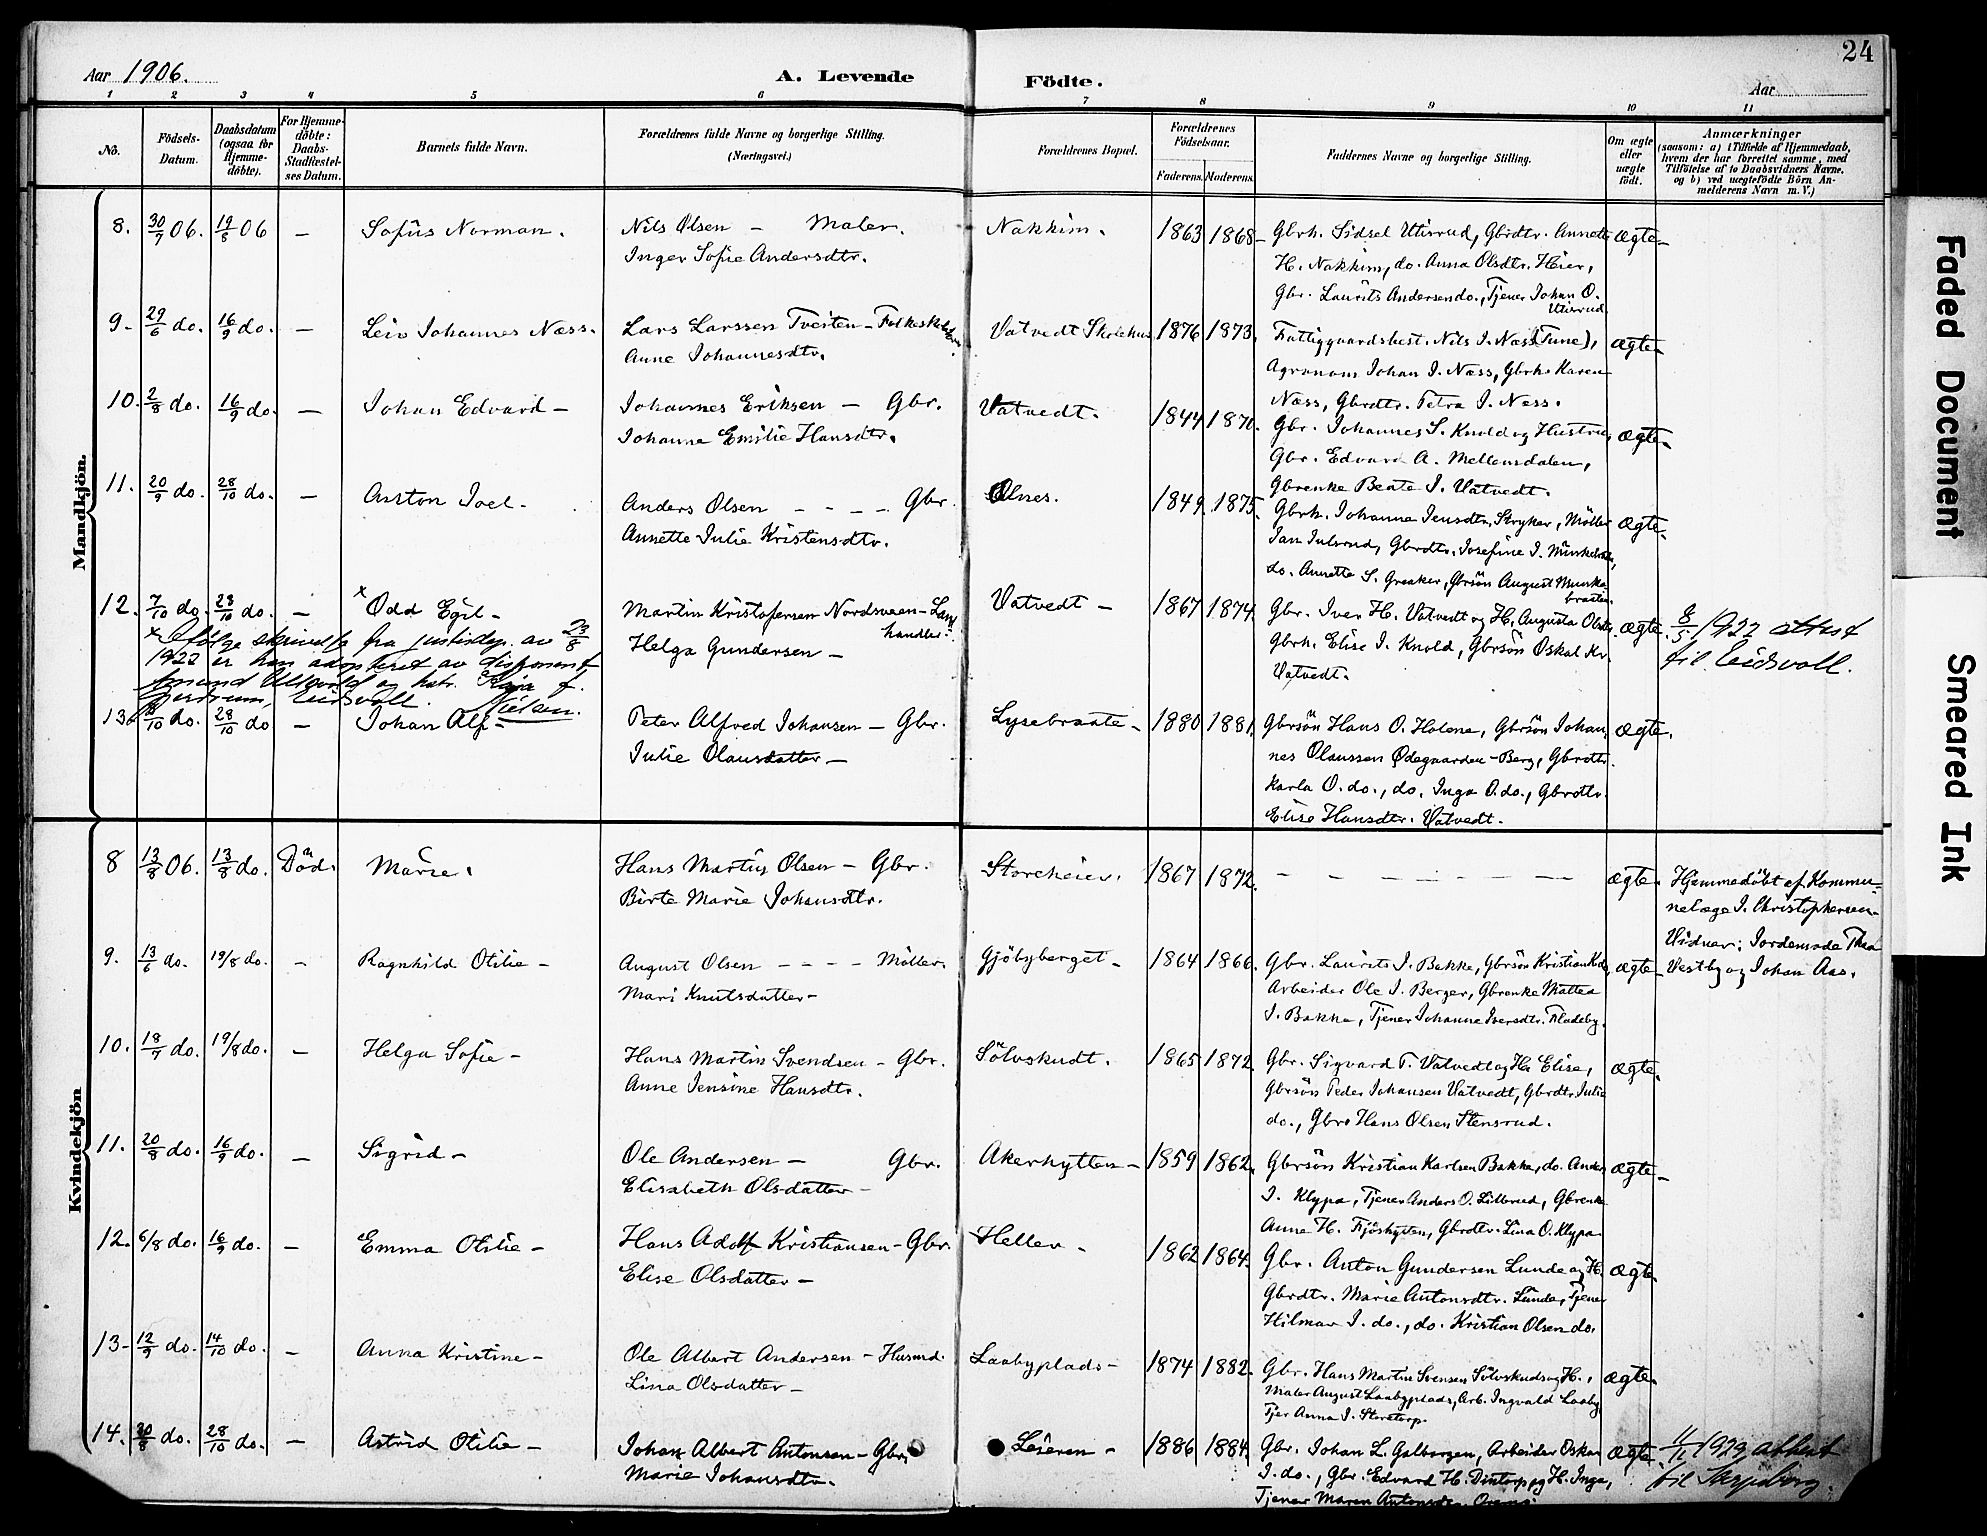 24
Aar 1906.
A. Levende
Födte.
Aar
1 2 3 4 5 6 7 8 9 10 11
No.
Födsels-Datum.
Daabsdatum (ogsaa for Hjemme-döbte).
For Hjemme-döbte: Daabs-Stadfæstel-ses Datum.
Barnets fulde Navn.
Forældrenes fulde Navne og borgerlige Stilling.
(Næringsvei.)
Forældrenes Bopæl.
Forældrenes Födselsaar.
Faderens. Moderens.
Faddernes Navne og borgerlige Stilling.
Om ægte eller uægte födt.
Anmærkninger
(saasom: a) i Tilfælde af Hjemmedaab,
hvem der har forrettet samme, med
Tilföielse af to Daabsvidners Navne.
og b) ved uægtefödte Börn An-
melderens Navn m. V.)
Mandkjön.
8. 30/7 06. 19/8 06 — Sofus Norman. Nils Olsen — Maler. Nakkim. 1863 1868 Gbrk. Sidsel Utisrud, Gbrdtr. Annette ægte
Inger Sofie Andersdtr. H. Nakkim, do. Anna Olsdtr. Heier,
Gbr. Laurits Andersen do., Tjener Johan O.
Utisrud.
9. 29/6 do. 16/9 do. — Leiv Johannes Næss. Lars Larssen Tveiten — Vatvedt Skolehus 1876 1873. Fattiggaardsbest. Nils J. Næss (Tune), ægte
Anne Johannesdtr. Agronom Johan J. Næss, Gbrk. Karen
Næss, Gbrdtr. Petra J. Næss.
10. 2/8 do. 16/9 do. — Johan Edvard — Johannes Eriksen — Gbr. Vatvedt. 1844 1870. Gbr. Johannes S. Knold og Hustru, ægte
Johanne Emilie Hansdtr. Gbr. Edvard A. Mellemsdalen,
Gbrenke Beate J. Vatvedt.
11. 20/9 do. 28/10 do. — Anton Joel. Anders Olsen — Gbr. Olnes. 1849 1875. Gbrk. Johanne Jensdtr. Stryker, Möller ægte
Annette Julie Kristensdtr. Jan Julsrud, Gbrdtr. Josefine J.
do. Annette S. Greaker, Gbrsön August
12. 7/10 do. 28/10 do. — × Odd Egil — Martin Kristofersen Nordsveen — Land Vatvedt — 1867 1874. Gbr. Iver H. Vatvedt og H. Augusta Olsdtr. ægte. 8/5 1922 attest
handler
× Ifölge skrivelse fra justisdep. av 23/8 Helga Gundersen — Gbrk. Elise J. Knold, Gbrsön Oskal Kr. til Eidsvoll.
1922 er han adopteret av disponent Vatvedt.
Amund Ullevold og hstr. Kaja f.
Gjerdrum, Eidsvoll. Nielsen.
13. /10 do. 28/10 do — Johan Alf — Peter Alfred Johansen — Gbr. Lysebraate — 1880 1881. Gbrsön Hans O. Holene, Gbrsön Johan- ægte.
Julie Olausdatter — nes Olaussen Ødegaarden-Berg, Gbrdtr.
Karla O. do., do. Inga O. do., Gbrdtr.
Elise Hansdtr. Vatvedt.
Kvindekjön
8 13/8 06. 13/8 do. Död. Marie. Hans Martin Olsen — Gbr. Storeheier. 1867 1872. — — — — — — — ægte. Hjemmedöbt af Kommu-
Birte Marie Johansdtr. nelæge J. Christophersen —
Vidner: Jordemode Thea
9. 13/6 do. 19/8 do. — Ragnhild Otilie — August Olsen — — — — Möller. Gjöbyberget — 1864 1866. Gbr. Laurits J. Bakke, Gbrsön Kristian K. do. ægte — Vestby og Johan Aas.
Mari Knutsdatter — Arbeider Ole J. Berger, Gbrenke Mattea
J. Bakke, Tjener Johanne Iversdtr. Fladeby.
10. 18/7 do. 19/8 do. — Helga Sofie — Hans Martin Svendsen — Gbr. Sölvskudt. 1865 1872. Gbr. Sigvard T. Vatvedt og H. Elise, ægte.
Anne Jensine Hansdtr. Gbrsön Peder Johansen Vatvedt, Gbrdtr. Julie
do., Gbr. Hans Olsen Stensrud.
11. 20/8 do. 16/9 do. — Sigrid — Ole Andersen — Gbr. Akerhytten — 1859 1862. Gbrsön Kristian Karlsen Bakke, do. Anders ægte —
Elisabeth Olsdatter — J. Klypa, Tjener Anders O. Lillerud, Gbrenke
Anne H. Fjöshytten, Gbrdtr. Lina O. Klypa.
12. 6/8 do. 16/9 do. — Emma Otilie — Hans Adolf Kristiansen — Gbr. Heller. 1862 1864. Gbr. Anton Gundersen Lunde og H. ægte.
Elise Olsdatter — Gbrdtr. Marie Antonsdtr. Lunde, Tjener
Hilmar J. do., do. Kristian Olsen do.
13. 12/9 do. 14/10 do. — Anna Kristine — Ole Albert Andersen — Husmd. Laabyplads — 1874 1882. Gbr. Hans Martin Svensen Sölvskudt og H., ægte.
Lina Olsdatter — Maler August Laabyplads, Arb. Ingvald Laaby
Tjer Anna J. Storetorp.
14. 30/8 do. 28/10 do. — Astrid Otilie — Johan Albert Antonsen — Gbr. Leieren — 1886 1884. Gbr. Johan L. Galbergen, Arbeider Oskar ægte. 11/11 1929 attest
Marie Johansdtr. J. do., Gbr. Edvard H. Dintorp og H. Inga, til Skjeberg.
Tjener Maren Antonsdtr.
Faded Document
Smeared Ink